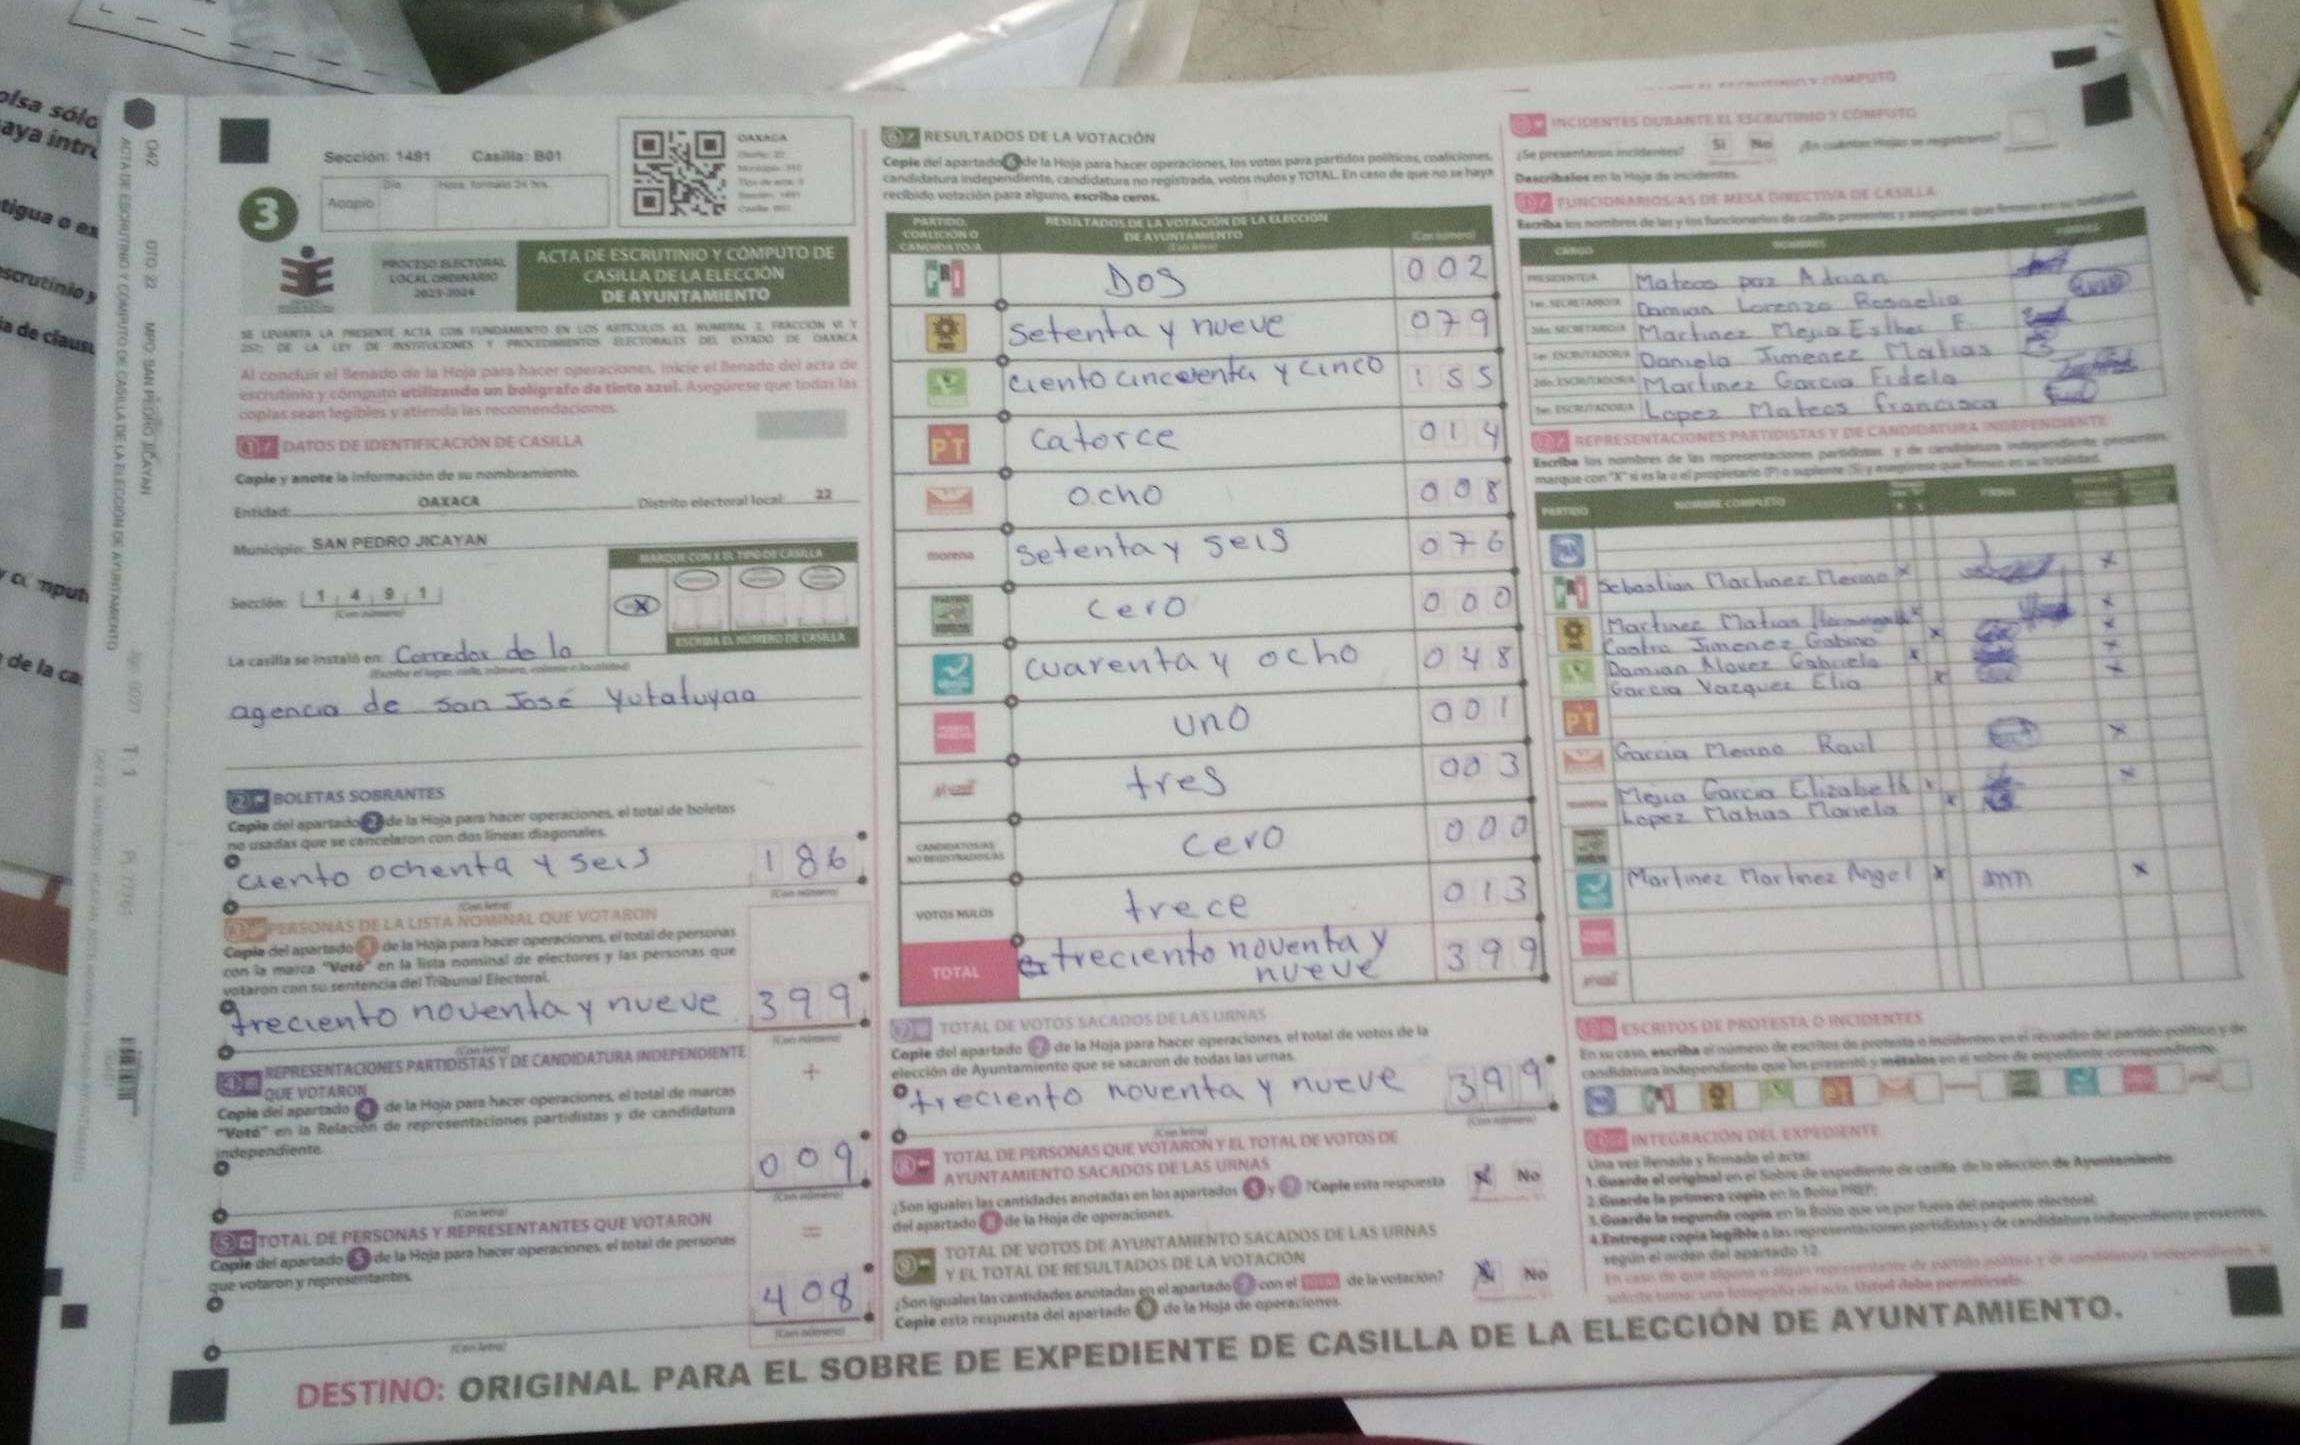 olsa sólo
aya intro
tigua o ex
scrutinio y
ia de claus
de la ca
042 DTO. 22 MPIO. SAN PEDRO JICAYAN
ACTA DE ESCRUTINIO Y CÓMPUTO DE CASILLA DE LA ELECCIÓN DE AYUNTAMIENTO
Sección: 1491 Casilla: B01
OAXACA
3
Acopio
Día
Hora, formato 24 hrs.
PROCESO ELECTORAL
LOCAL ORDINARIO
2023-2024
ACTA DE ESCRUTINIO Y CÓMPUTO DE
CASILLA DE LA ELECCIÓN
DE AYUNTAMIENTO
SE LEVANTA LA PRESENTE ACTA CON FUNDAMENTO EN LOS ARTÍCULOS 63, NUMERAL 2, FRACCIÓN VI Y
257; DE LA LEY DE INSTITUCIONES Y PROCEDIMIENTOS ELECTORALES DEL ESTADO DE OAXACA
Al concluir el llenado de la Hoja para hacer operaciones, inicie el llenado del acta de
escrutinio y cómputo utilizando un bolígrafo de tinta azul. Asegúrese que todas las
copias sean legibles y atienda las recomendaciones.
1 DATOS DE IDENTIFICACIÓN DE CASILLA
Copie y anote la información de su nombramiento.
Entidad: OAXACA Distrito electoral local: 22
Municipio: SAN PEDRO JICAYAN
MARQUE CON X EL TIPO DE CASILLA
Sección: 1 4 9 1
(Con número)
X
ESCRIBA EL NÚMERO DE CASILLA
La casilla se instaló en: Corredor de la
(Escriba el lugar, calle, número, colonia o localidad)
agencia de San José Yutatuyaa
2 BOLETAS SOBRANTES
Copie del apartado 2 de la Hoja para hacer operaciones, el total de boletas
no usadas que se cancelaron con dos líneas diagonales.
ciento ochenta y seis 186
(Con letra) (Con número)
3 PERSONAS DE LA LISTA NOMINAL QUE VOTARON
Copie del apartado 3 de la Hoja para hacer operaciones, el total de personas
con la marca "Votó" en la lista nominal de electores y las personas que
votaron con su sentencia del Tribunal Electoral.
treciento noventa y nueve 399
(Con letra) (Con número)
4 REPRESENTACIONES PARTIDISTAS Y DE CANDIDATURA INDEPENDIENTE
QUE VOTARON
+
Copie del apartado 4 de la Hoja para hacer operaciones, el total de marcas
"Votó" en la Relación de representaciones partidistas y de candidatura
independiente.
009
(Con letra) (Con número)
5 TOTAL DE PERSONAS Y REPRESENTANTES QUE VOTARON
=
Copie del apartado 5 de la Hoja para hacer operaciones, el total de personas
que votaron y representantes.
408
(Con letra) (Con número)
6 RESULTADOS DE LA VOTACIÓN
Copie del apartado 6 de la Hoja para hacer operaciones, los votos para partidos políticos, coaliciones,
candidatura independiente, candidatura no registrada, votos nulos y TOTAL. En caso de que no se haya
recibido votación para alguno, escriba ceros.
PARTIDO,
COALICIÓN O
CANDIDATO/A
RESULTADOS DE LA VOTACIÓN DE LA ELECCIÓN
DE AYUNTAMIENTO
(Con letra)
(Con número)
PRI Dos 002
PRD setenta y nueve 079
ciento cincuenta y cinco 155
PT catorce 014
ocho 008
morena setenta y seis 076
cero 000
cuarenta y ocho 048
uno 001
tres 003
CANDIDATOS/AS
NO REGISTRADOS/AS
cero 000
VOTOS NULOS trece 013
TOTAL treciento noventa y
nueve 399
7 TOTAL DE VOTOS SACADOS DE LAS URNAS
Copie del apartado 7 de la Hoja para hacer operaciones, el total de votos de la
elección de Ayuntamiento que se sacaron de todas las urnas.
treciento noventa y nueve 399
(Con letra) (Con número)
8 TOTAL DE PERSONAS QUE VOTARON Y EL TOTAL DE VOTOS DE
AYUNTAMIENTO SACADOS DE LAS URNAS
¿Son iguales las cantidades anotadas en los apartados 5 y 7 ? Copie esta respuesta
del apartado 8 de la Hoja de operaciones.
Sí No
9 TOTAL DE VOTOS DE AYUNTAMIENTO SACADOS DE LAS URNAS
Y EL TOTAL DE RESULTADOS DE LA VOTACIÓN
¿Son iguales las cantidades anotadas en el apartado 7 con el TOTAL de la votación?
Copie esta respuesta del apartado 9 de la Hoja de operaciones.
Sí No
INCIDENTES DURANTE EL ESCRUTINIO Y CÓMPUTO
¿Se presentaron incidentes? Sí No ¿En cuántas Hojas se registraron?
Descríbalos en la Hoja de incidentes.
FUNCIONARIOS/AS DE MESA DIRECTIVA DE CASILLA
Escriba los nombres de las y los funcionarios de casilla presentes y asegúrese que firmen en su totalidad.
CARGO NOMBRES FIRMAS
PRESIDENTE/A Mateos paz Adrian
1er. SECRETARIO/A Damian Lorenzo Rosaelia
2do. SECRETARIO/A Martinez Mejia Esther F.
1er. ESCRUTADOR/A Daniela Jimenez Matias
2do. ESCRUTADOR/A Martinez Garcia Fidela
3er. ESCRUTADOR/A Lopez Mateos francisca
REPRESENTACIONES PARTIDISTAS Y DE CANDIDATURA INDEPENDIENTE
Escriba los nombres de las representaciones partidistas y de candidatura independiente presentes,
marque con "X" si es la o el propietario (P) o suplente (S) y asegúrese que firmen en su totalidad.
PARTIDO NOMBRE COMPLETO FIRMA
PAN
PRI Sebastian Martinez Merino x x
Martinez Matias x
Jimenez Gabino x x
Damian Alavez Gabriela x x
Garcia Vazquez Elia x x
PT
Garcia Merino Raul x
Mejia Garcia Elizabeth x x
Lopez Matias Mariela x
Martinez Martinez Angel x x
ESCRITOS DE PROTESTA O INCIDENTES
En su caso, escriba el número de escritos de protesta o incidentes en el recuadro del partido político y de
candidatura independiente que los presentó y métalos en el sobre de expediente correspondiente.
INTEGRACIÓN DEL EXPEDIENTE
Una vez llenada y firmada el acta:
1. Guarde el original en el Sobre de expediente de casilla de la elección de Ayuntamiento
2. Guarde la primera copia en la Bolsa PREP;
3. Guarde la segunda copia en la Bolsa que va por fuera del paquete electoral;
4. Entregue copia legible a las representaciones partidistas y de candidatura independiente presentes,
según el orden del apartado 12.
DESTINO: ORIGINAL PARA EL SOBRE DE EXPEDIENTE DE CASILLA DE LA ELECCIÓN DE AYUNTAMIENTO.